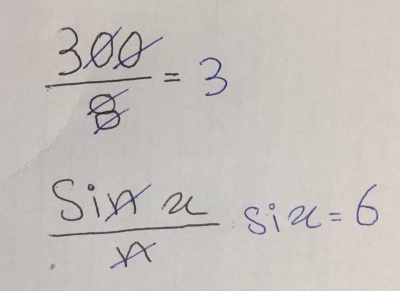 300/8 = 3
sin x/n six = 6